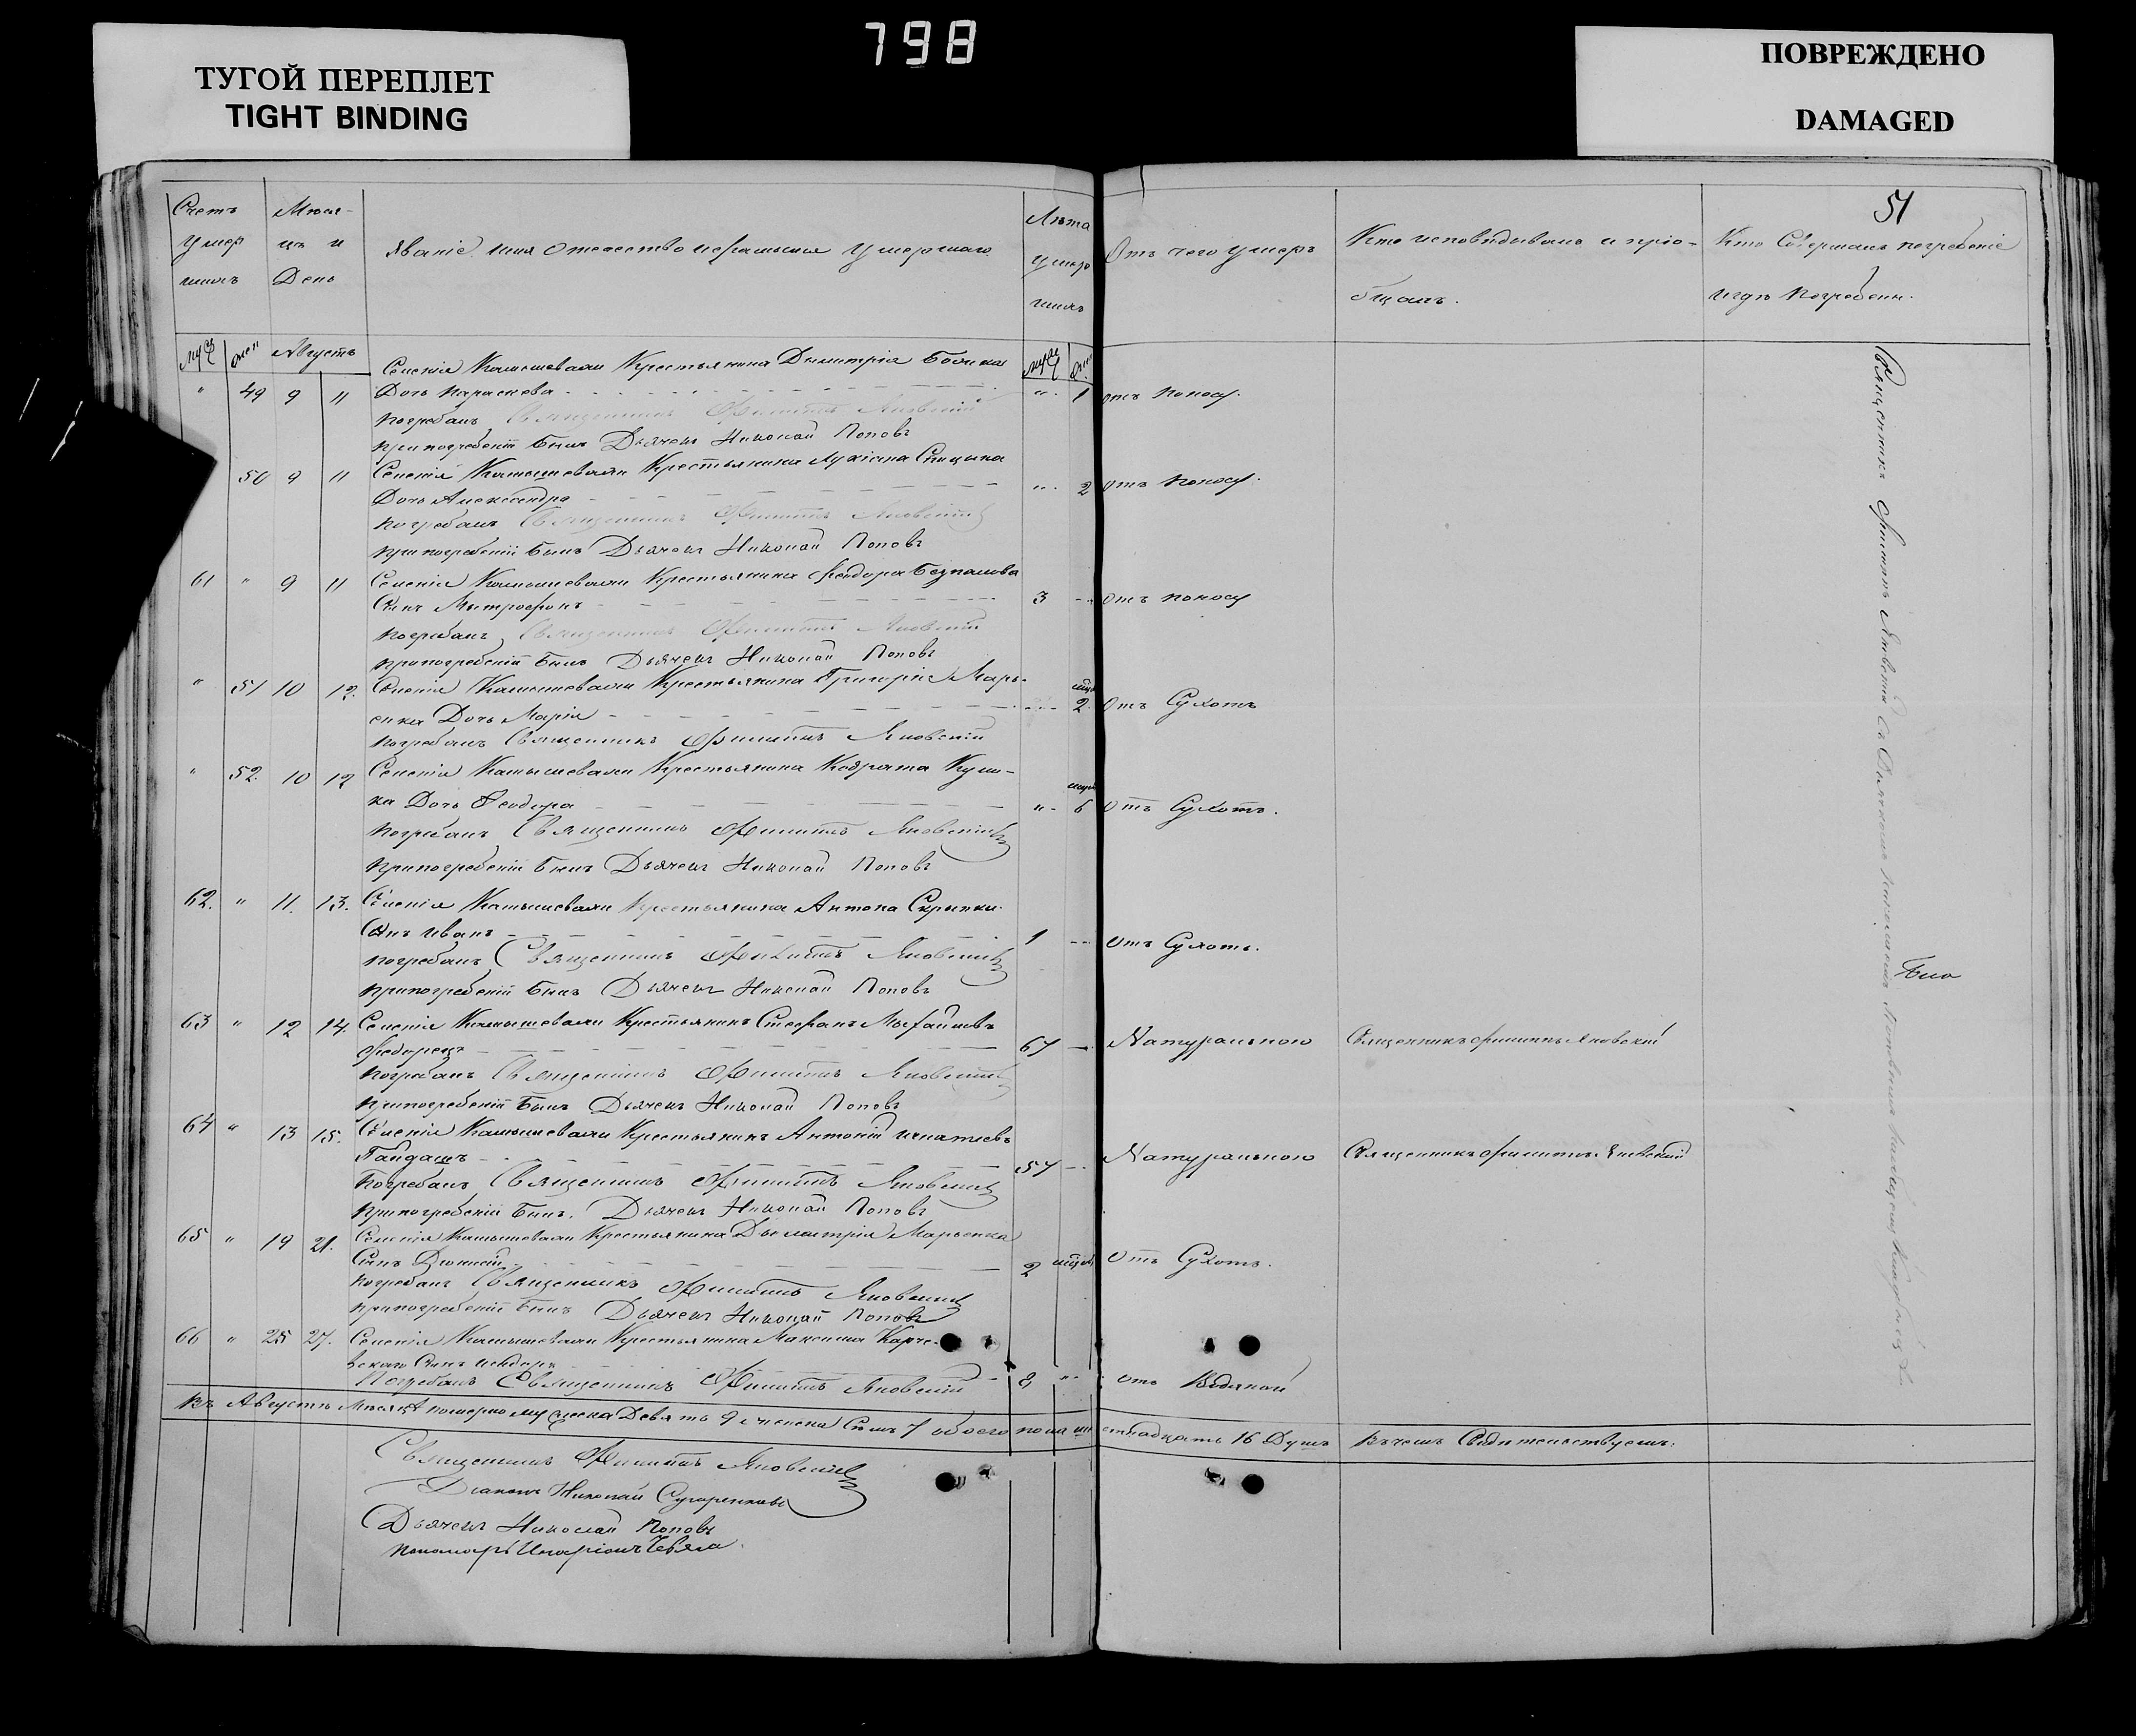 798
ТУГОЙ ПЕРЕПЛЕТ
TIGHT BINDING
ПОВРЕЖДЕНО
DAMAGED
51
Счетъ умер шихъ
Мѣся- цъ и День
Званіе имя отечество и фамилия умершаго
Лѣта умер шихъ
Отъ чего умеръ
Кто исповѣдывалъ и пріо- бщалъ.
Кто Совершалъ погребеніе и гдѣ погребен.
муж жен Августъ муж жен
Селенія Камышевахи Крестьянина Димитрія
" 49 9 11 Дочь Параскева " 1 отъ поносу.
Погребалъ Священникъ Филиппъ Яновскій
При погребеніи Былъ Дьячекъ Николай Поповъ
50 9 11 Селенія Камышевахи Крестьянина Лукіана Спицына
Дочь Александра " 2 отъ поносу.
Погребалъ Священникъ Филиппъ Яновскій
При погребеніи Былъ Дьячекъ Николай Поповъ
61 " 9 11 Селенія Камышевахи Крестьянина Феодора Безпалова
Сынъ Митрофанъ 3 отъ поносу
Погребалъ Священникъ Филиппъ Яновскій
При погребеніи Былъ Дьячекъ Николай Поповъ
" 51 10 12. Селенія Камышевахи Крестьянина Григорія Марь-
енка Дочь Марія 2 Отъ Сухотъ
Погребалъ Священникъ Филиппъ Яновскій
" 52. 10 12 Селенія Камышевахи Крестьянина Кодрата
ка Дочь Феодора " 6 Отъ Сухотъ.
Погребалъ Священникъ Филиппъ Яновскій
При погребеніи Былъ Дьячекъ Николай Поповъ
62. " 11. 13. Селенія Камышевахи Крестьянина Антона Скрыпки
Сынъ Иванъ 1 отъ Сухотъ.
Погребалъ Священникъ Филиппъ Яновскій
При погребеніи Былъ Дьячекъ Николай Поповъ
63 " 12 14. Селенія Камышевахи Крестьянинъ Стефанъ Михайловъ
Федорецъ 67 Натуральною Священникъ Филиппъ Яновскій
Погребалъ Священникъ Филиппъ Яновскій
При погребеніи Былъ Дьячекъ Николай Поповъ
64 " 13 15. Селенія Камышевахи Крестьянинъ Антоній Игнатіевъ
Гайдашъ 57 Натуральною Священникъ Филиппъ Яновскій
Погребалъ Священникъ Филиппъ Яновскій
При погребеніи Былъ. Дьячекъ Николай Поповъ
65 " 19 21. Селенія Камышевахи Крестьянина Димитрія Марьенка
Сынъ 2 Отъ Сухотъ.
Погребалъ Священникъ Филиппъ Яновскій
При погребеніи Былъ Дьячекъ Николай Поповъ
66 " 25 27. Селенія Камышевахи Крестьянина Максима Карче-
вскаго Сынъ 8 " отъ Водяной
Погребалъ Священникъ Филиппъ Яновскій
Въ Августѣ Мѣсяцѣ померло мужеска Девять 9 женска Семь 7 обоего пола шестнадцать 16 Душъ въ чемъ Свидѣтельствуемъ:
Священникъ Филиппъ Яновскій
Діаконъ Николай
Дьячекъ Николай Поповъ
Пономарь Иларіонъ
Священникъ Филиппъ Яновскій